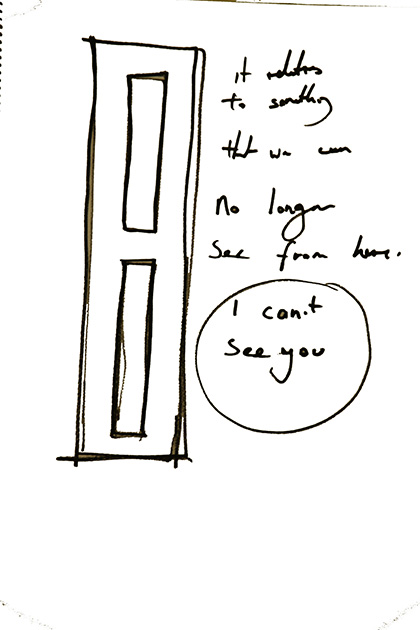 it relates
to something
that we can
No longer
See from here.
I can't
see you